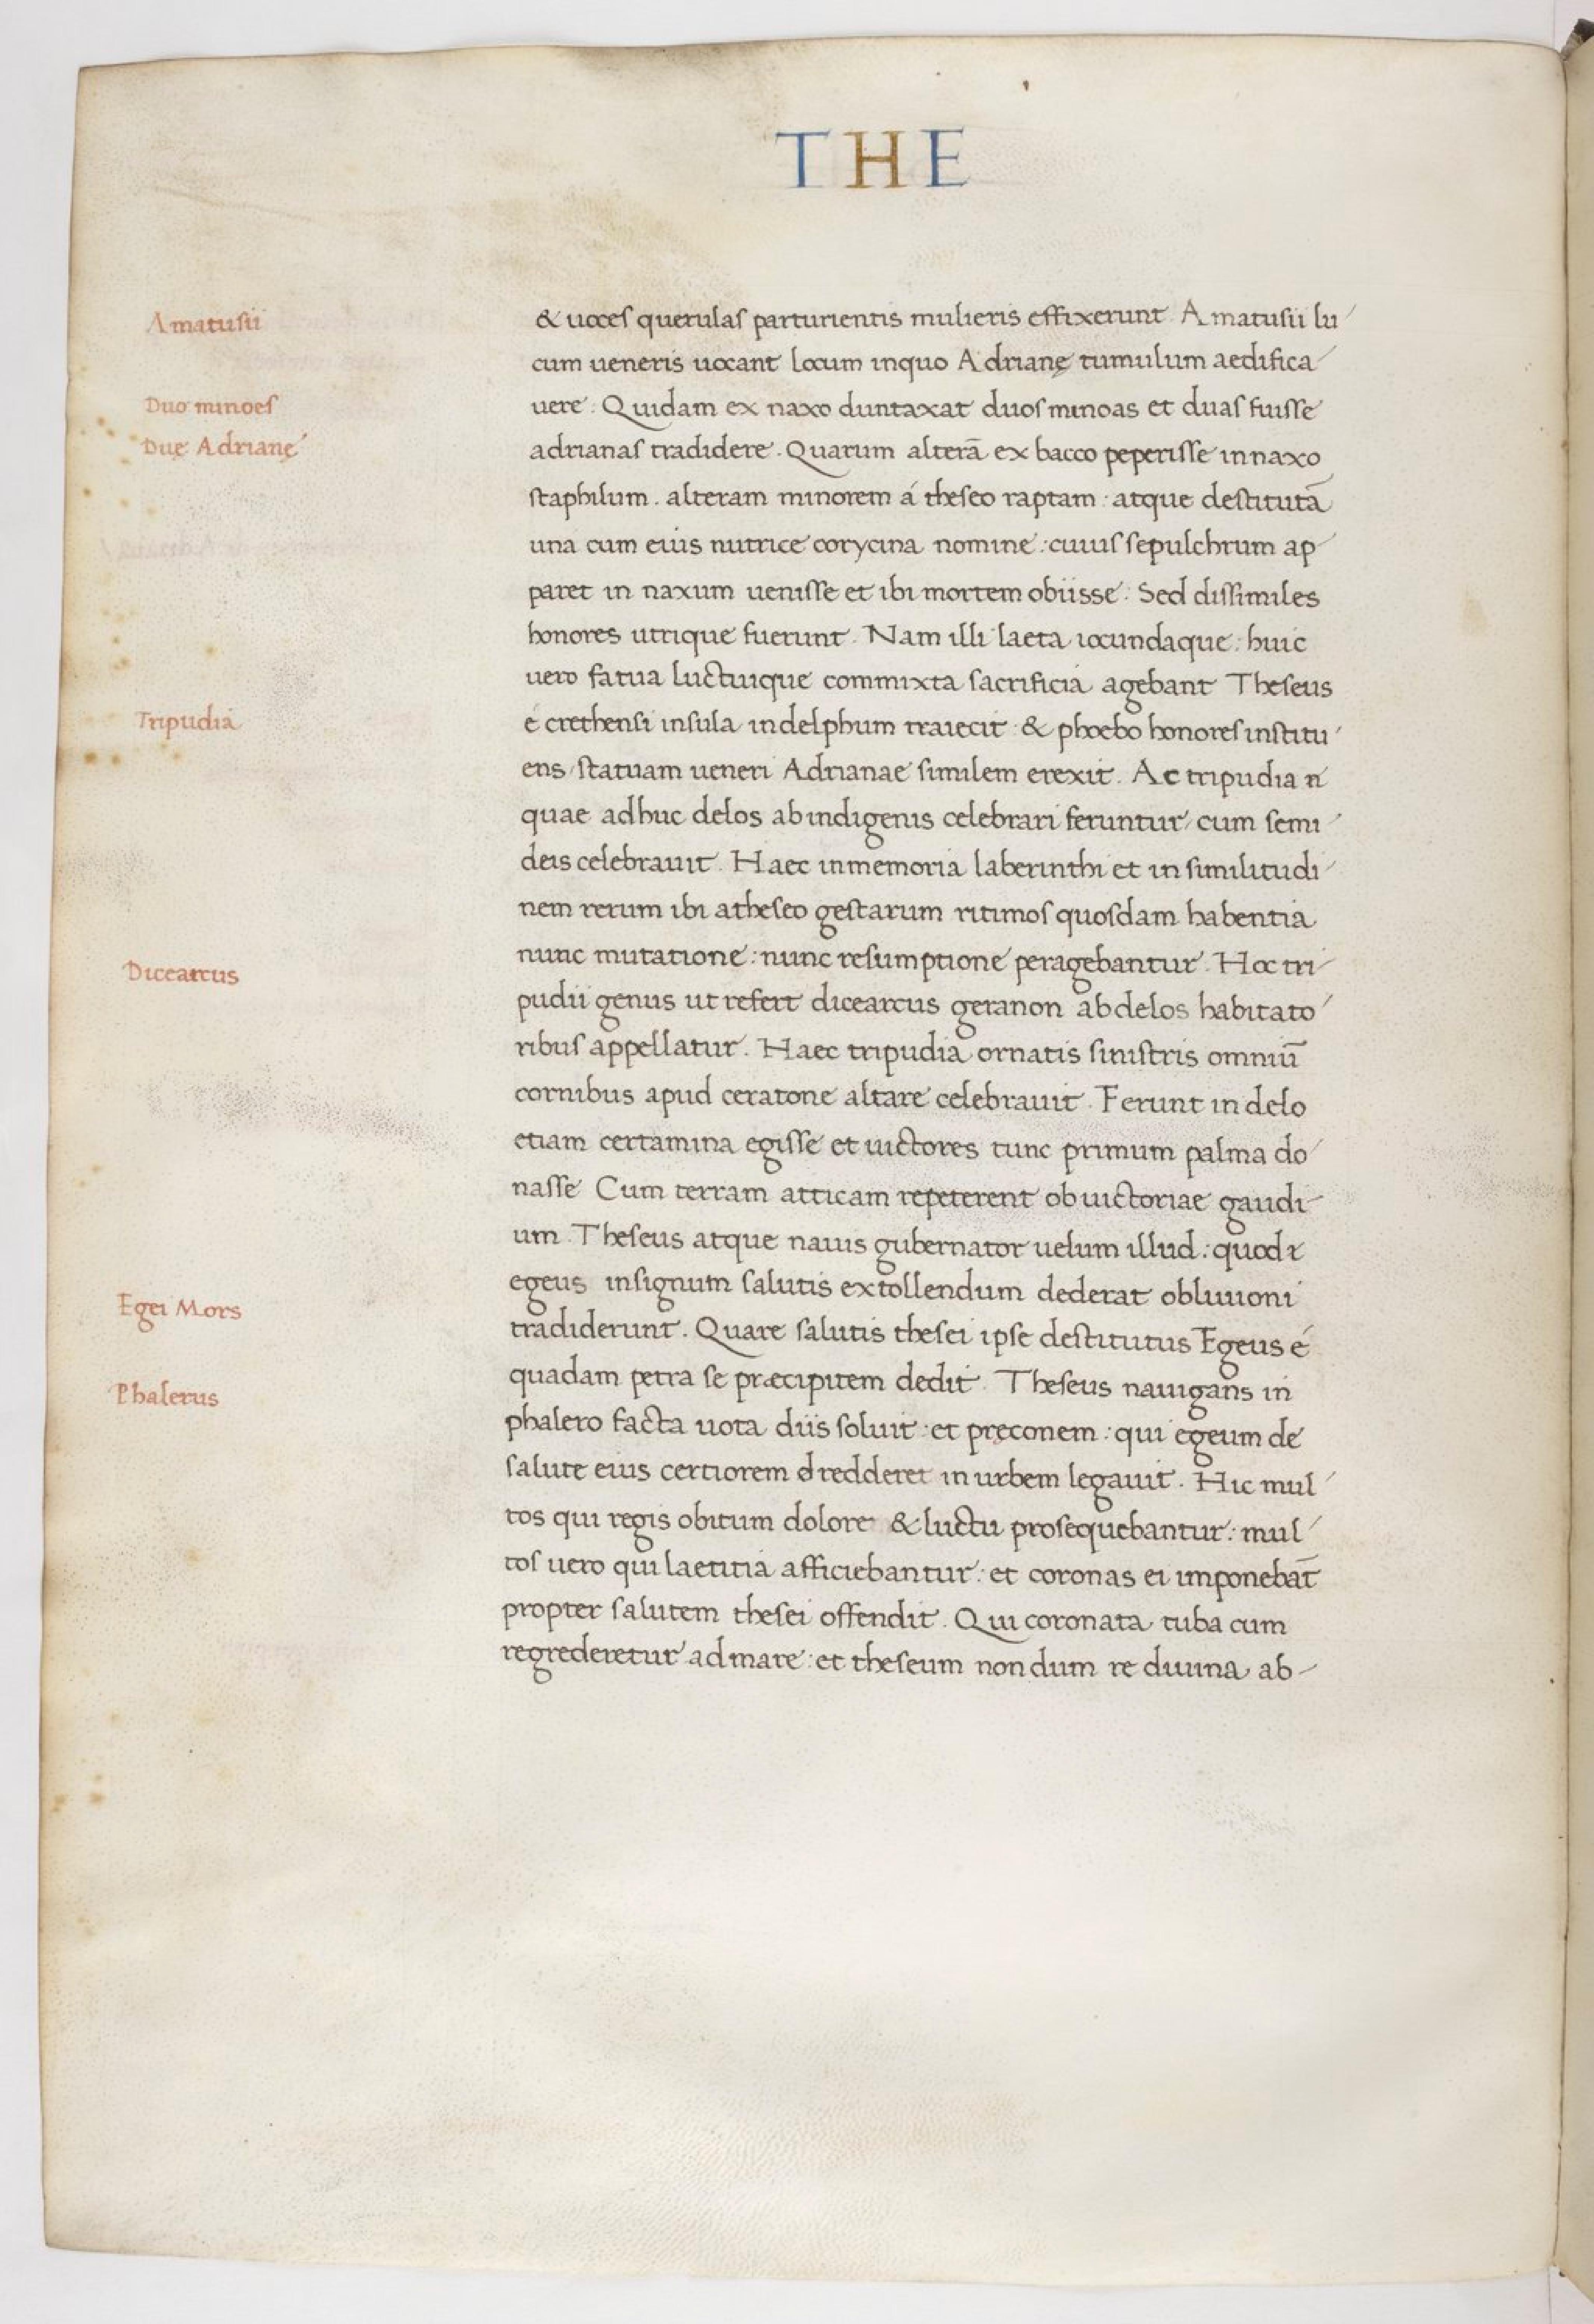 THE
Amatusii
Duo minoes
Duę Adrianę
Tripudia
Dicearcus
Egei Mors
Phalerus
& uoces querulas parturientis mulieris effixerunt. Amatusii lu-
cum ueneris uocant locum inquo Adrianę tumulum aedifica-
uere: Quidam ex naxo duntaxat duos minoas et duas fuisse
adrianas tradidere. Quarum alterā ex bacco peperisse in naxo
staphilum. alteram minorem á theseo raptam: atque destitutā
una cum eius nutrice corycina nomine: cuius sepulchrum ap-
paret in naxum uenisse et ibi mortem obiisse: Sed dissimiles
honores utrique fuerunt. Nam illi laeta iocundaque: huic
uero fatua luctuique commixta sacrificia agebant Theseus
é crethensi insula in delphum traiecit: & phoebo honores institu-
ens/statuam ueneri Adrianae similem erexit. Ac tripudia n̄
quae adhuc delos ab indigenis celebrari feruntur/cum semi-
deis celebrauit. Haec in memoria laberinthi et in similitudi-
nem rerum ibi atheseo gestarum ritimos quosdam habentia
nunc mutatione: nunc resumptione peragebantur. Hoc tri-
pudii genus ut refert dicearcus geranon ab delos habitato-
ribus appellatur. Haec tripudia ornatis sinistris omniū
cornibus apud ceratone altare celebrauit. Ferunt in delo
etiam certamina egisse et uictores tunc primum palma do-
nasse Cum terram atticam repeterent ob uictoriae gaudi-
um. Theseus atque nauis gubernator uelum illud: quod
egeus insignum salutis extollendum dederat obliuioni
tradiderunt. Quare salutis thesei ipse destitutus Egeus é
quadam petra se præcipitem dedit. Theseus nauigans in
phalero facta uota diis soluit: et pręconem: qui egeum de
salute eius certiorem redderet in urbem legauit. Hic mul-
tos qui regis obitum dolore & luctu prosequebantur: mul-
tos uero qui laetitia afficiebantur: et coronas ei imponebāt
propter salutem thesei offendit. Qui coronata tuba cum
regrederetur ad mare: et theseum non dum re diuina ab-